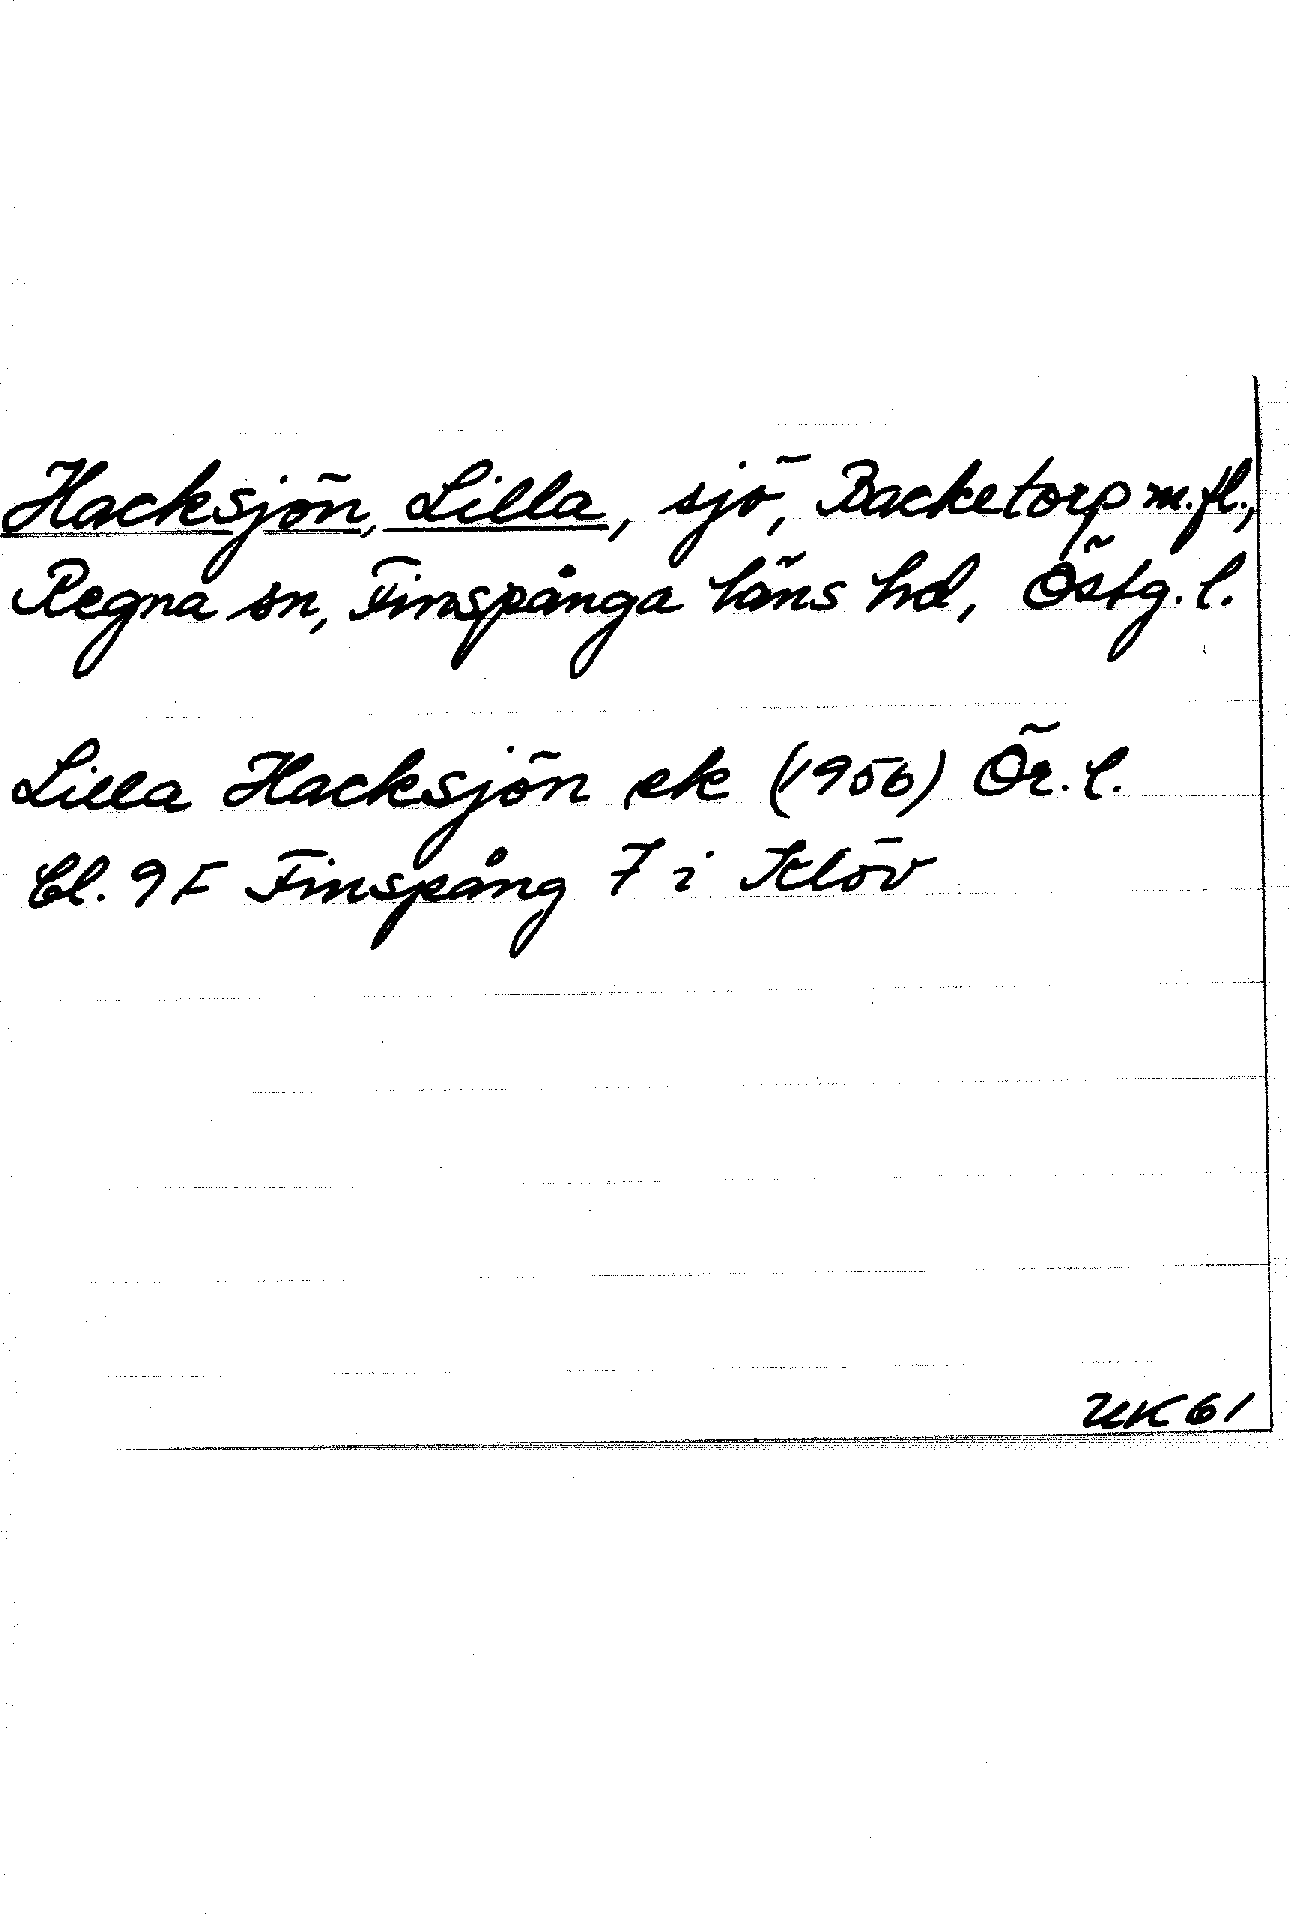 Hacksjön, Lilla, sjö, Backetorp m.fl.,
Regna sn, Finspånga läns hd, Östg. l.
Lilla Hacksjön ek (1956) Ör. l.
bl. 9F Finspång 7 i Klöv
UK 61